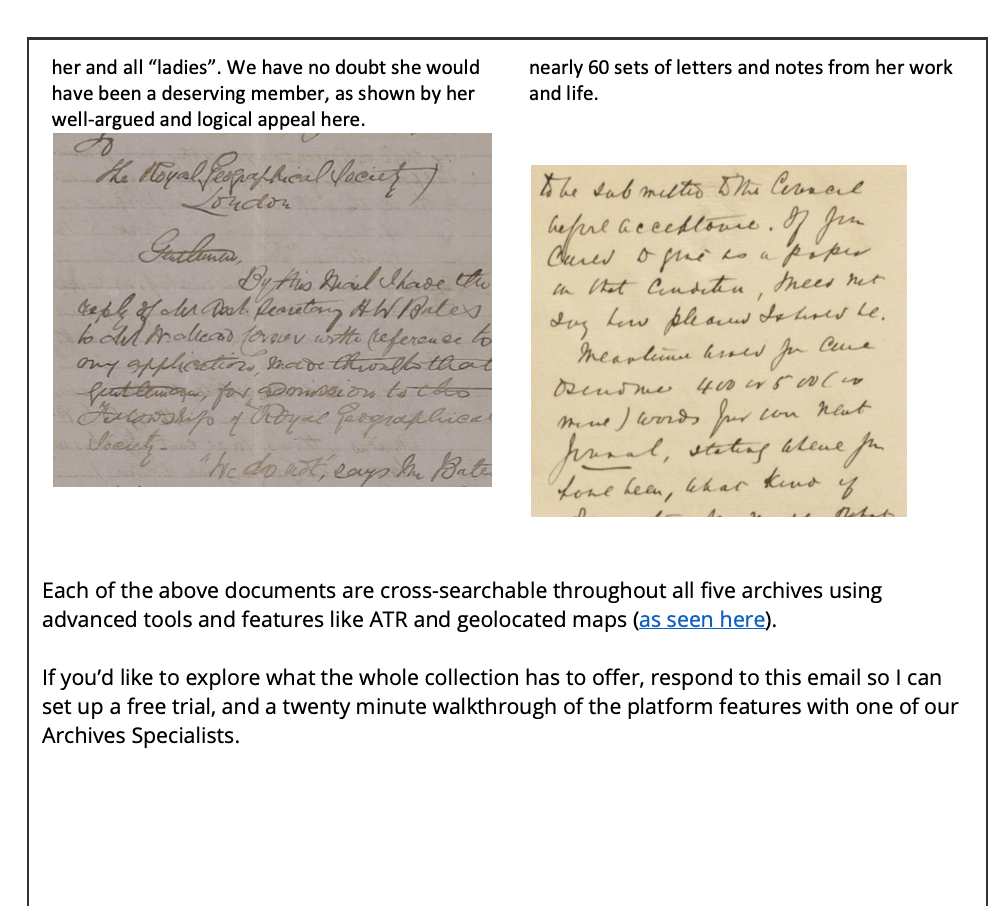 her and all “ladies”. We have no doubt she would
have been a deserving member, as shown by her
well-argued and logical appeal here.
To
The Royal Geographical Society)
London
Gentlemen,
By this Mail I have the
reply of Mr Asst. Secretary H W Bates
to with reference to
my application, made through that
gentleman, for admission to the
Fellowship of Royal Geographical
Society-
"We do not", says Mr Bate
nearly 60 sets of letters and notes from her work
and life.
to be submitted to the Council
before acceptance. If you
cared to give us a paper
on that condition, I need not
say how pleased I should be.
Meantime would you care
to send me 400 or 500 (or
more) words for our next
Journal, stating where you
have been, what kind of
Each of the above documents are cross-searchable throughout all five archives using
advanced tools and features like ATR and geolocated maps (as seen here).
If you’d like to explore what the whole collection has to offer, respond to this email so I can
set up a free trial, and a twenty minute walkthrough of the platform features with one of our
Archives Specialists.